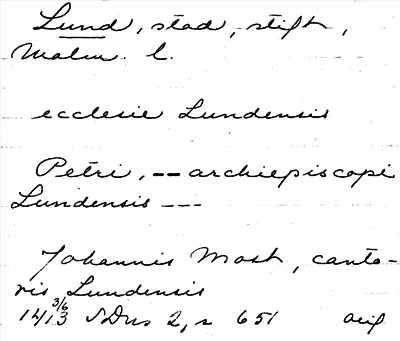 Lund, stad, stift,
Malm. l.
ecclesie Lundensis
Petri, -- archiepiscopi
Lundensis ---
Johannis Most, canto-
ris Lundensis
1413 3/6 SDns 2, s 651 orig